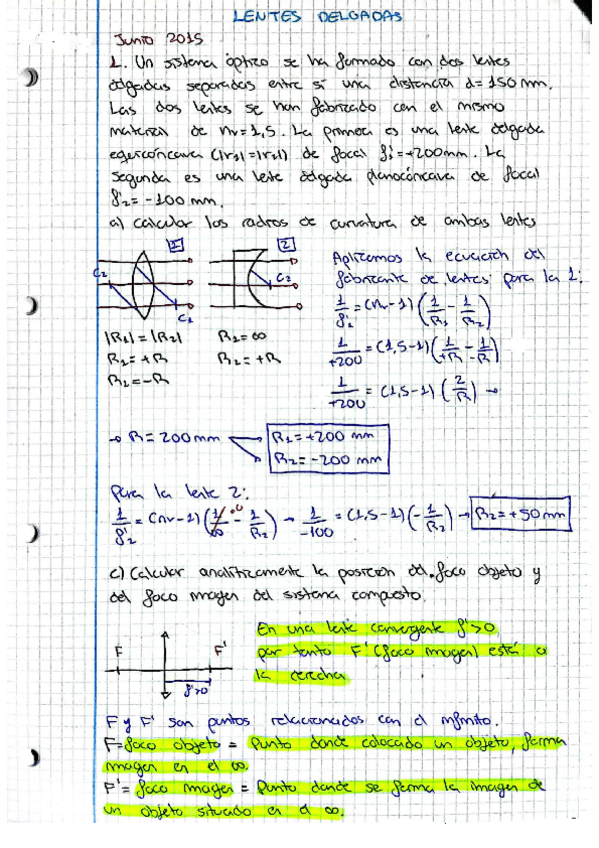 LENTES DELGADAS
Junio 2015
1. Un sistema óptico se ha formado con dos lentes
delgadas separadas entre sí una distancia d=150 mm.
Las dos lentes se han fabricado con el mismo
material de n=1,5. La primera es una lente delgada
equicóncava (|r1|=|r2|) de focal f'1=+200mm. La
segunda es una lente delgada planocóncava de focal
f'2=-100 mm.
a) calcular los radios de curvatura de ambas lentes
1
2
C2
C1
C2
Aplicamos la ecuación del
fabricante de lentes para la 1:
1/f'1 = (n-1) (1/R1 - 1/R2)
|R1|=|R2|
R1=+R
R2=-R
R1=∞
R2=+R
1/+200 = (1,5-1) (1/+R - 1/-R)
1/+200 = (1,5-1) (2/R) →
→ R=200mm
R1=+200 mm
R2=-200 mm
para la lente 2:
1/f'2 = (n-1) (1/∞ - 1/R2) → 1/-100 = (1,5-1) (-1/R2) → R2=+50mm
0
c) Calcular analíticamente la posición del foco objeto y
del foco imagen del sistema compuesto.
F
F'
f'>0
En una lente convergente f'>0,
por tanto F' (foco imagen) está a
la derecha
F y F' son puntos relacionados con el infinito.
F=foco objeto = punto donde colocado un objeto, forma
imagen en el ∞.
F'= foco imagen = punto donde se forma la imagen de
un objeto situado en el ∞.